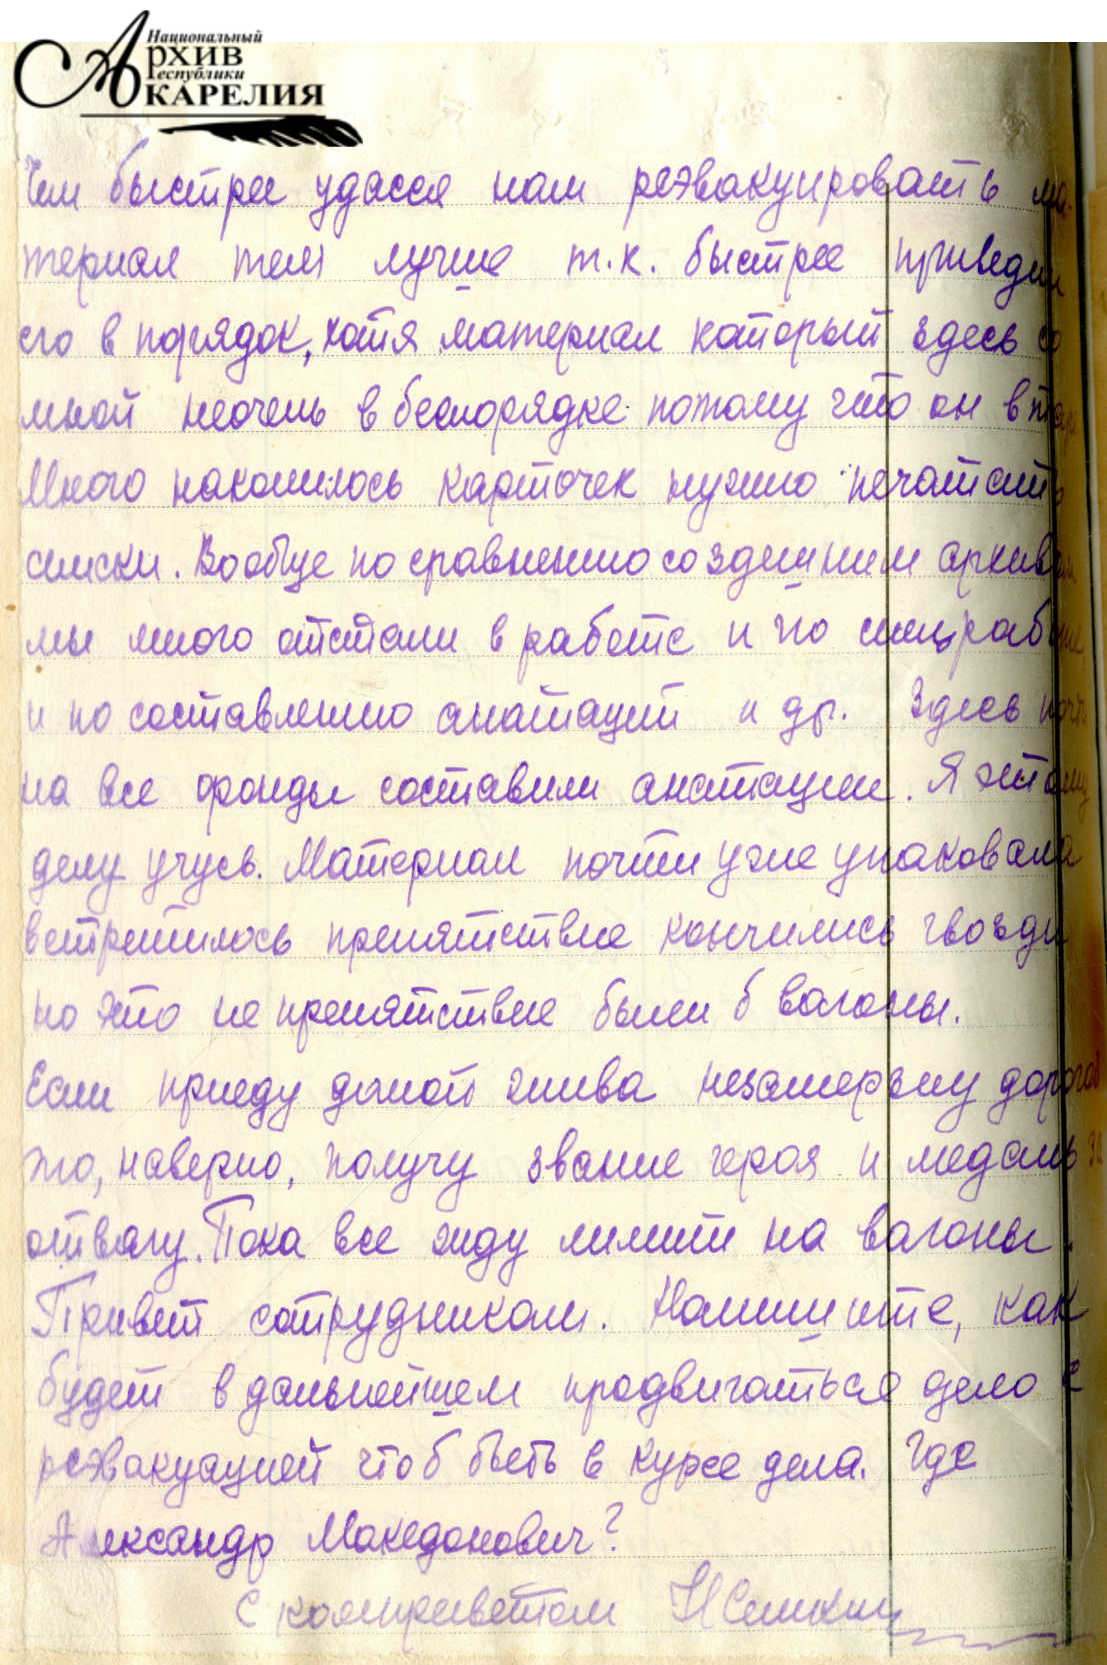 Национальный
Архив
Республики
КАРЕЛИЯ
Чем быстрее удасся нам реэвакуировать ма-
териал тем лучше т.к. быстрее приведем
его в порядок, хотя материал который здесь со
мной неочень в беспорядке потому что он в
Много накопилось карточек нужно печатать
списки. Вообще по сравнению со здешним архивом
мы много отстали в работе и по спецработе
и по составлению анатаций и др. Здесь почти
на все фонды составили анатации. Я этому
делу учусь. Материал почти уже упаковала
встретилось препятствие кончились гвозди
но это не препятствие были б вагоны.
Если приеду домой жива незамерзну дорогой
то, наверно, получу звание героя и медаль за
отвагу. Пока все жду лимит на вагоны.
Привет сотрудникам. Напишите, как
будет в дальнейшем продвигаться дело с
реэвакуацией чтоб быть в курсе дела. Где
Александр Македонович?
С комприветом